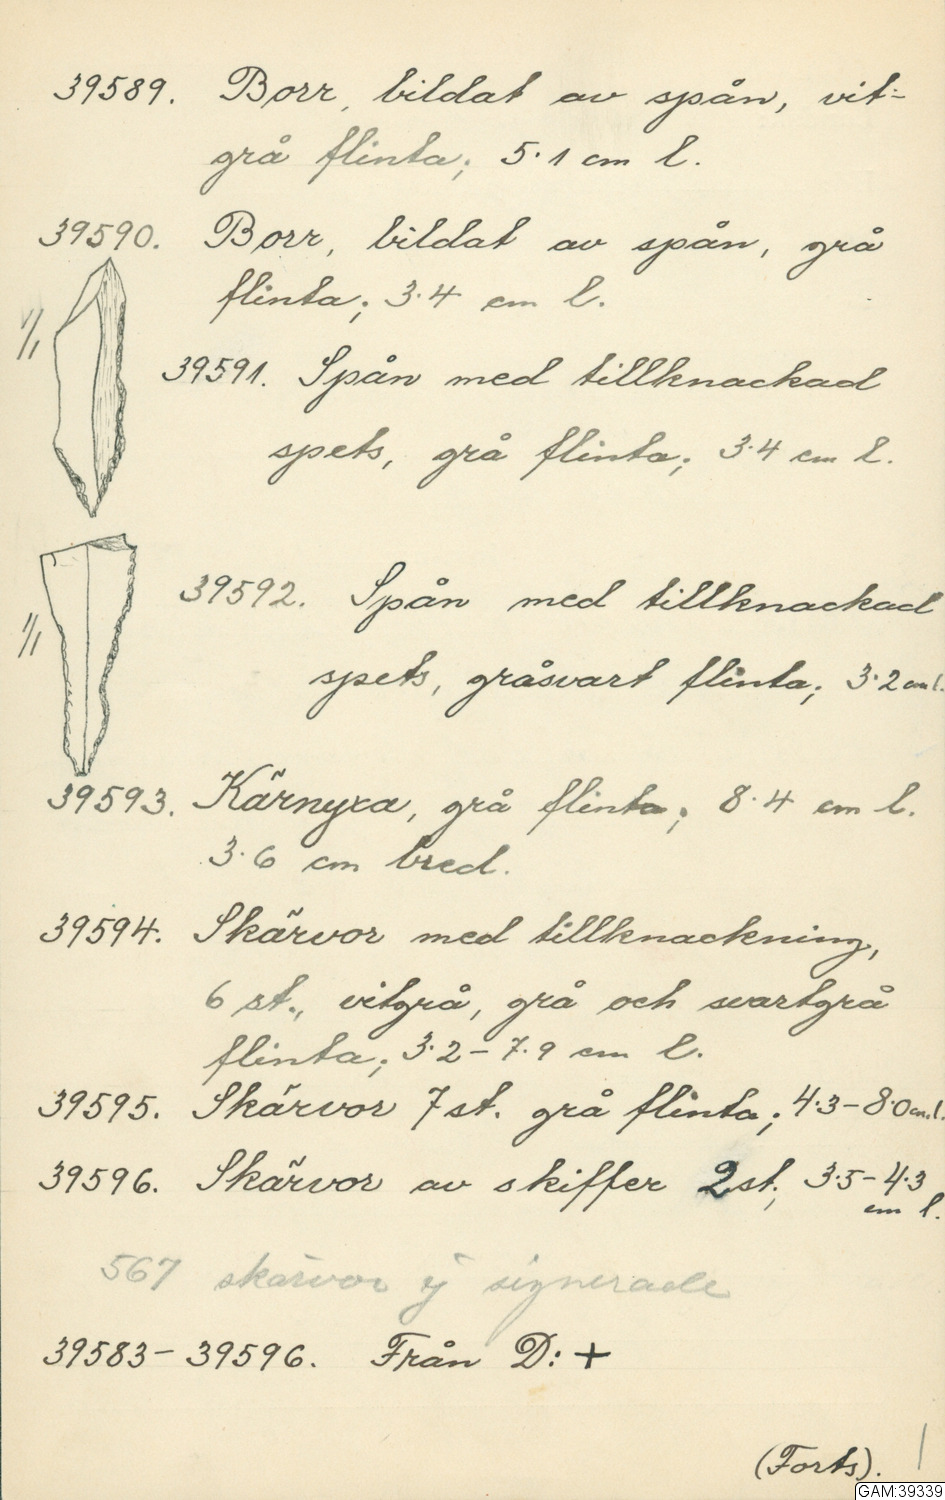 39589. Borr, bildat av spån, vit-
grå flinta; 5.1 cm l.
39590. Borr, bildat av spån, grå
flinta; 3.4 cm l.
1/1
39591. Spån med tillknackad
spets, grå flinta; 3.4 cm l.
39592. Spån med tillknackad
1/1
spets, gråsvart flinta; 3.2 cm l.
39593. Kärnyxa, grå flinta; 8.4 cm l.
3.6 cm bred.
39594. Skärvor med tillknackning,
6 st., vitgrå, grå och svartgrå
flinta; 3.2-7.9 cm l.
39595. Skärvor 7 st. grå flinta; 4.3-8.0 cm l.
39596. Skärvor av skiffer 2 st; 3.5-4.3
cm l.
567 skärvor ej signerade
39583-39596. Från D: +
(Forts).
GAM:39339